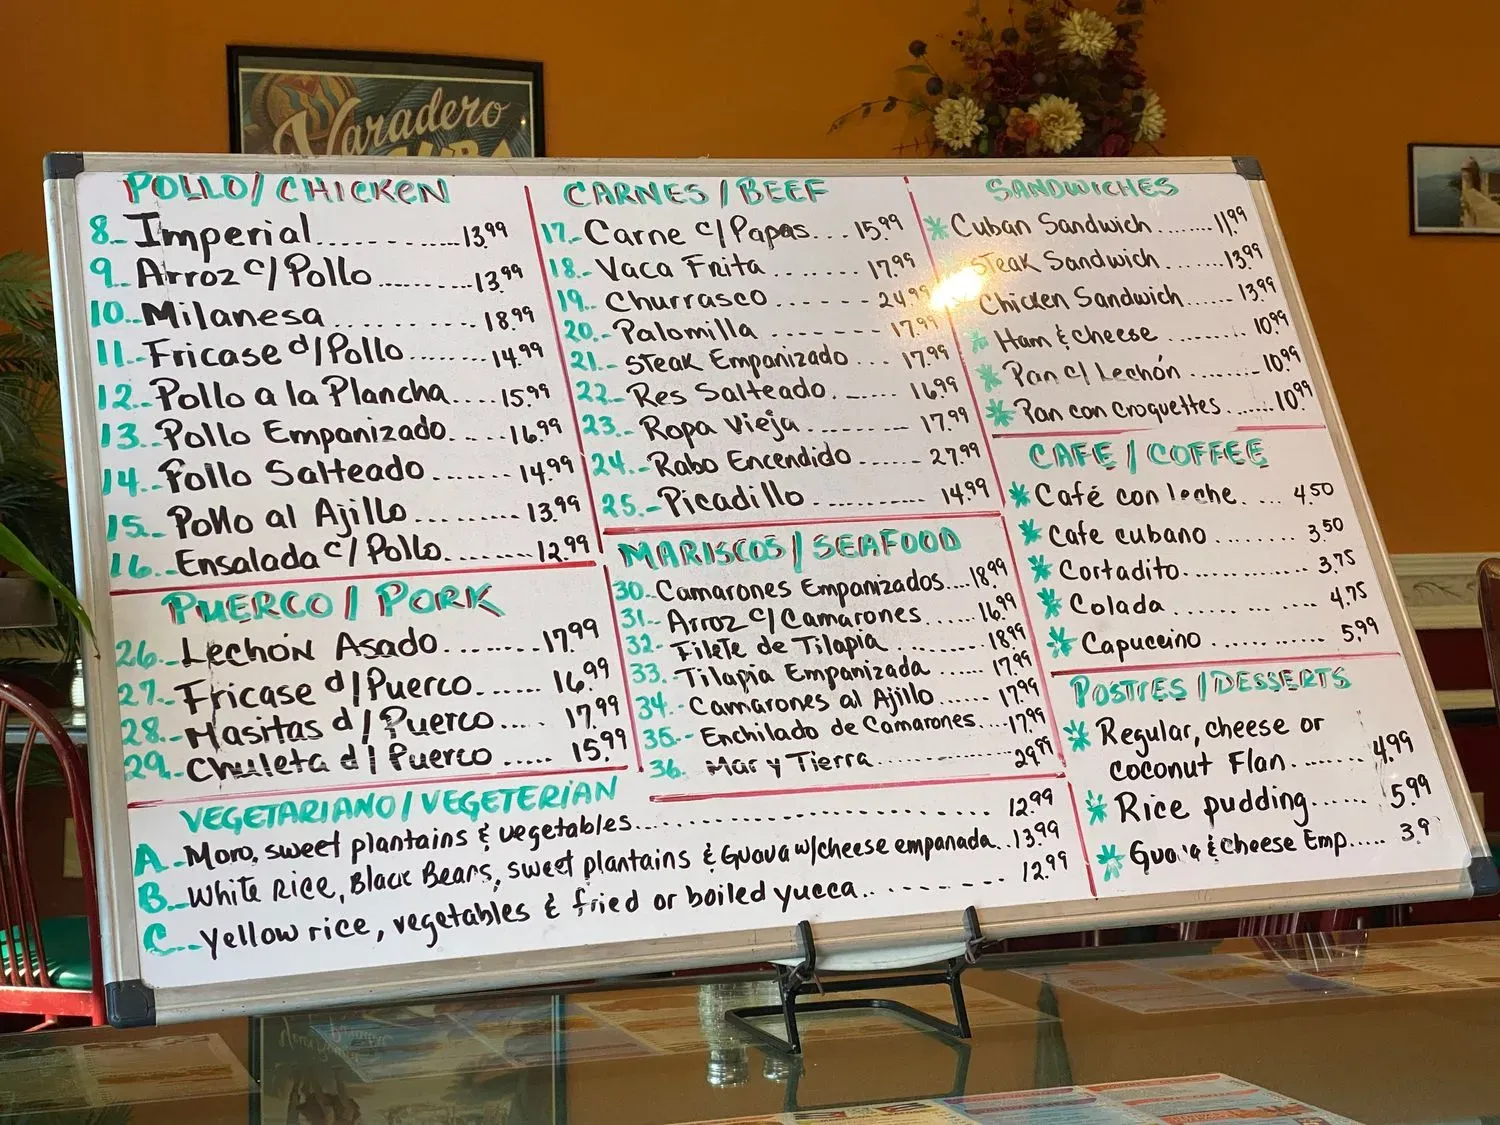 Varadero
POLLO/CHICKEN
8.- Imperial............13.99
9.- Arroz c/Pollo...........13.99
10.- Milanesa...........18.99
11.- Fricase d/Pollo........14.99
12.- Pollo a la Plancha....15.99
13.- Pollo Empanizado.....16.99
14.- Pollo Salteado.......14.99
15.- Pollo al Ajillo.........13.99
16.- Ensalada c/Pollo........12.99
PUERCO/PORK
26.- Lechón Asado.......17.99
27.- Fricase d/Puerco......16.99
28.- Masitas d/Puerco.....17.99
29.- Chuleta d/Puerco.....15.99
CARNES/BEEF
17.- Carne c/Papas...15.99
18.- Vaca Frita.......17.99
19.- Churrasco......24.99
20.- Palomilla.......17.99
21.- Steak Empanizado...17.99
22.- Res Salteado......16.99
23.- Ropa Vieja........17.99
24.- Rabo Encendido......27.99
25.- Picadillo..........14.99
MARISCOS/SEAFOOD
30.- Camarones Empanizados...18.99
31.- Arroz c/Camarones......16.99
32.- Filete de Tilapia.........18.99
33.- Tilapia Empanizada......17.99
34.- Camarones al Ajillo......17.99
35.- Enchilado de Camarones....17.99
36. Mar y Tierra............29.99
SANDWICHES
* Cuban Sandwich........11.99
Steak Sandwich.......13.99
Chicken Sandwich......13.99
* Ham & Cheese.........10.99
* Pan c/Lechón.........10.99
* Pan con croquettes.......10.99
CAFE/COFFEE
* Café con leche.....4.50
* Cafe cubano........3.50
* Cortadito............3.75
* Colada..............4.75
* Capuccino............5.99
POSTRES/DESSERTS
* Regular, cheese or
coconut Flan........4.99
* Rice pudding......5.99
* Guava & cheese Emp.....3.9
VEGETARIANO/VEGETERIAN
A.- Moro, sweet plantains & vegetables...................12.99
B.- White Rice, Black Beans, sweet plantains & Guava w/cheese empanada..13.99
C.- Yellow rice, vegetables & fried or boiled yucca..........12.99